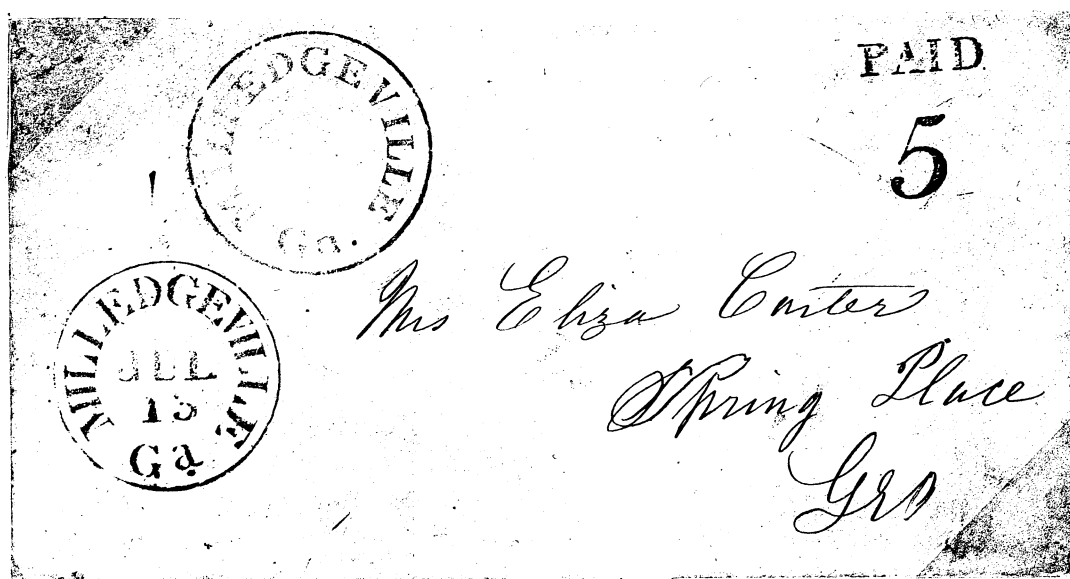 MILLEDGEVILLE
Ga.
PAID
5
MILLEDGEVILLE
JUL
15
Ga
Mrs Eliza Carter
Spring Place
Geo